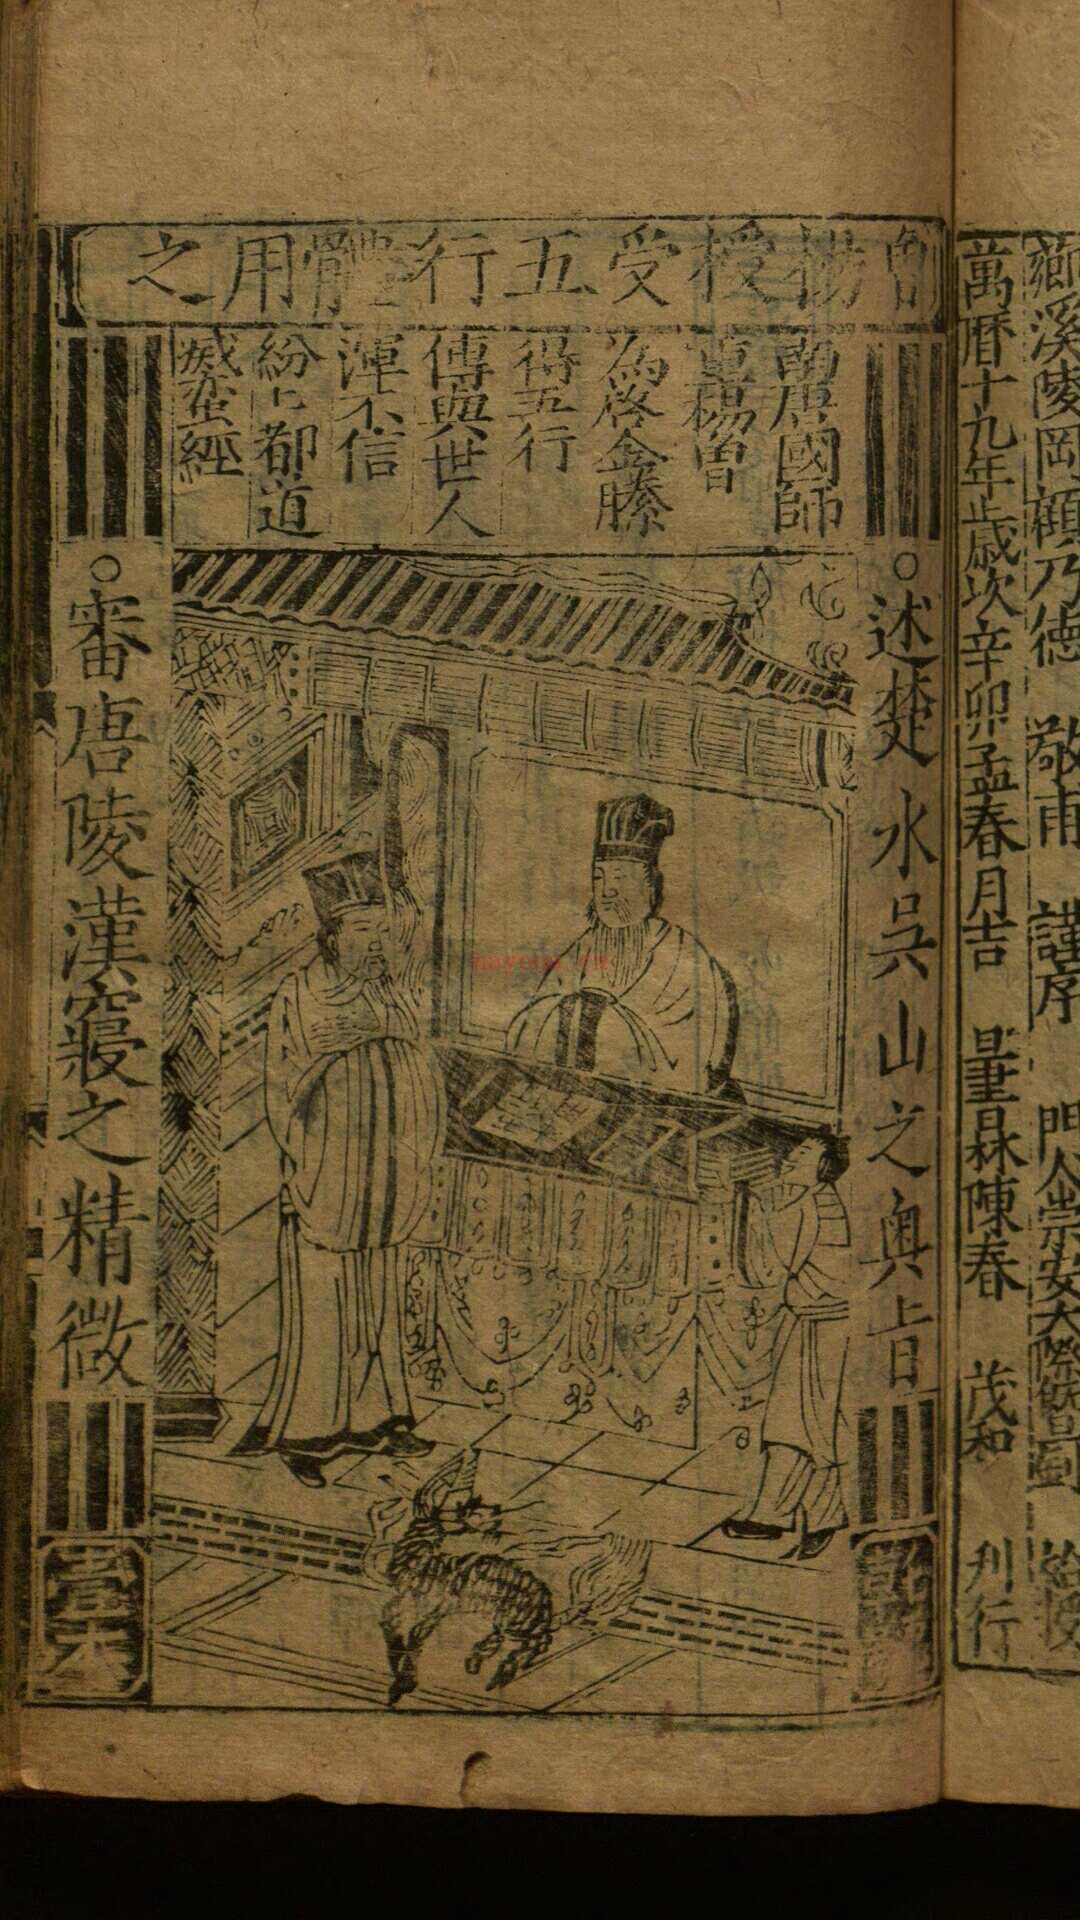 鄉溪陵岡顧乃德 敬甫 謹序 門人崇安大
萬曆十九年歲次辛卯孟春月吉 書林陳春 茂和 刋行
曾楊授受五行體用之
南唐國師
曾
為啓金縢
得五行
傳與世人
渾不信
紛〻都道
滅蠻經
○述楚水吳山之奥旨
○審唐陵漢寢之精微
nayona.cn